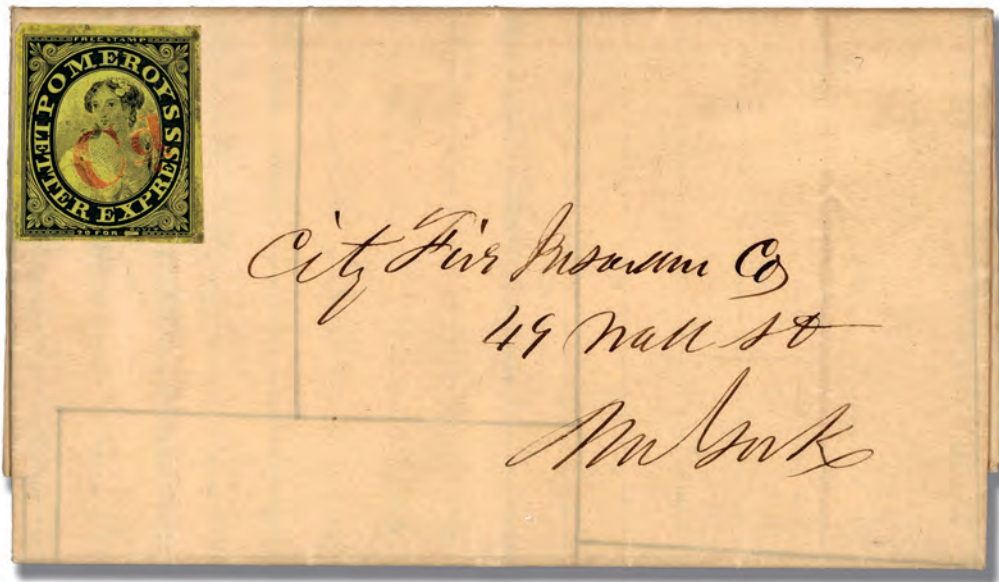 FREE STAMP
POMEROY'S LETTER EXPRESS
Cd
20 FOR
City Fire Insurance Co
49 Wall St
New York